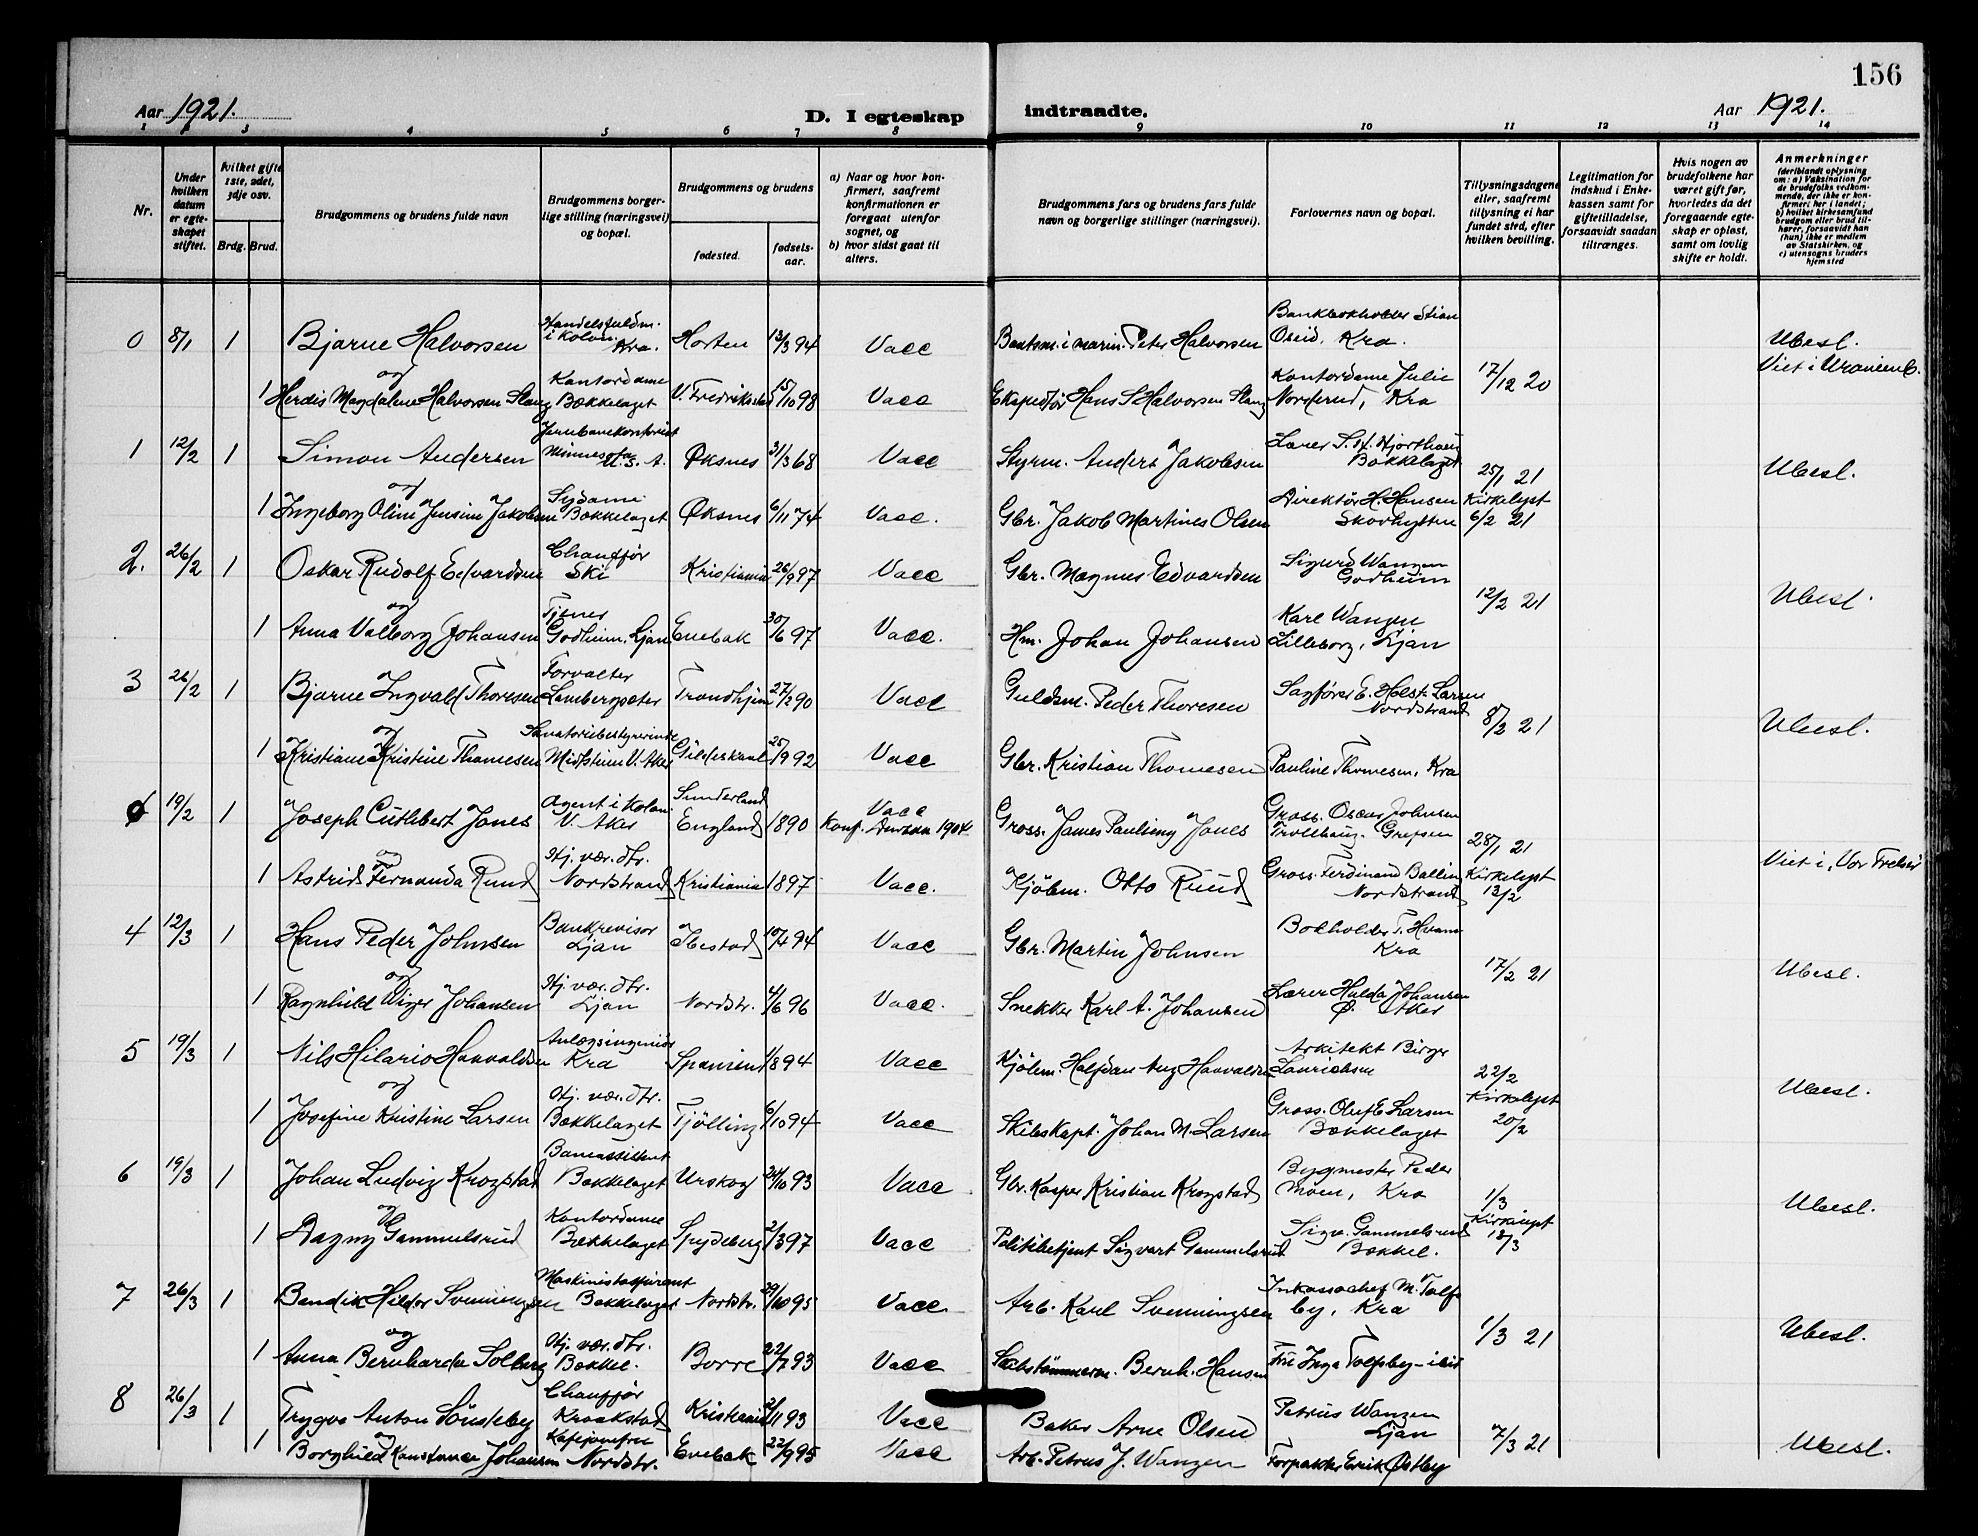 156
Aar 1921.
D. I egteskap indtraadte.
Aar 1921.
1 2 3 4 5 6 7 8 9 10 11 12 13 14
Nr.
Under hvilken datum er egteskapet stiftet.
Hvilket gifte 1ste, 2det, 3dje osv.
Brdg. Brud.
Brudgommens og brudens fulde navn
Brudgommens borgerlige stilling (næringsvei) og bopæl.
Brudgommens og brudens
fødested.
fødselsaar.
a) Naar og hvor konfirmert, saafremt konfirmationen er foregaat utenfor sognet, og
b) hvor sidst gaat til alters.
Brudgommens fars og brudens fars fulde navn og borgerlige stillinger (næringsvei).
Forlovernes navn og bopæl.
Tillysningsdagene eller, saafremt tillysning ei har fundet sted, efter hvilken bevilling.
Legitimation for indskud i Enkekassen samt for giftetilladelse, forsaavidt saadan tiltrænges.
Hvis nogen av brudefolkene har været gift før, hvorledes da det foregaaende egteskap er opløst, samt om lovlig skifte er holdt.
Anmerkninger (deriblandt oplysning om: a) Vaksination for de brudefolks vedkommende, der ikke er konfirmert her i landet; b) hvilket kirkesamfund brudgom eller brud tilhører, forsaavidt han (hun) ikke er medlem av Statskirken, og c) utensogns bruders hjemsted
0 8/1 1 Bjarne Halvorsen Kra. Horten 13/3 94 Vacc Peter Halvorsen Bankbokholder Stian Oseid, Kra. Ubesl.
og
1 Herdis Magdalene Halvorsen Slang Kontordame Bækkelaget V. Fredrikstad 15/10 98 Vacc Ekspeditør Hans S Halvorsen Slang Kontordame Julie Norderud, Kra 17/12 20 Viet i Uranienb.
1 12/2 1 Simon Andersen Jernbanekontorist Minnesota U.S.A. Øksnes 31/3 68 Vacc Styrm. Anders Jakobsen Lærer S. H. Hjorthaug Bækkelaget 25/1 21 Ubesl.
og
1 Ingeborg Oline Jensine Jakobsen Sydame Bækkelaget Øksnes 6/11 74 Vacc. Gbr. Jakob Martines Olsen Direktør H. Hansen Skovhytten Kirkelyst 6/2 21
2. 26/2 1 Oskar Rudolf Edvardsen Chauffør Ski Kristiania 26/9 97 Vacc Gbr. Magnus Edvardsen Sigurd Wangen Godheim 12/2 21 Ubesl.
og
1 Anna Valborg Johansen Tjener Godheim, Ljan Enebak 30/6 97 Vacc. Hm. Johan Johansen Karl Wangen Lilleborg, Ljan
3 26/2 1 Bjarne Ingvald Thoresen Forvalter Lambergsæter Trondhjem 27/2 90 Vacc Guldsm. Peder Thoresen Sagfører E. Holst Larsen Nordstrand 8/2 21 Ubesl.
og
1 Kristiane Kristine Thomesen Sanatoriebestyrerinde Midtstuen V. Aker Gildeskaal 25/9 92 Vacc Gbr. Kristian Thomesen Pauline Thomesen, Kra
0 19/2 1 Joseph Cuthbert Jones Agent i Kolon V. Aker Sunderland England 1890 Vacc Konf. 1904 Gross. James Jones Gross. Oscar Johnsen Trollhaug, Grefsen 28/1 21
og
1 Astrid Fernanda Ruud Hj. vær. dtr. Nordstrand Kristiania 1897 Vacc. Kjøbm. Otto Ruud Gross. Ferdinand Ballin Nordstrand Kirkelyst 13/2 Viet i „Vor Frelser
4 12/3 1 Hans Peder Johnsen Bankrevisor Ljan Ibestad 10/4 94 Vacc Gbr. Martin Johnsen Bokholder T. Kra 17/2 21 Ubesl.
og
1 Ragnhild Wiger Johansen Hj. vær. dtr. Ljan Nordstr. 4/6 96 Vacc. Snekker Karl A. Johansen Lærer Hulda Johansen Ø. Aker
5 19/3 1 Nils Hilario Haavaldsen Anlægsingeniør Kra Spanien 1894 Vacc Kjøbm. Halfdan Aug Haavaldsen Arkitekt Birger Lauridsen 22/2 Ubesl.
og
1 Josefine Kristine Larsen Hj. vær. dtr. Bækkelaget Tjølling 6/10 94 Vacc Skibskapt. Johan M. Larsen Gross. Oluf E Larsen Bækkelaget Kirkelyst 20/2
6 19/3 1 Johan Ludvig Krogstad Baneassistent Bækkelaget Urskog 24/10 93 Vacc Gbr. Kasper Kristian Krogstad Bygmester Peder Moen, Kra 1/3 Ubesl.
og
1 Dagny Gammelsrud Kontordame Bækkelaget Spydeberg 2/3 97 Vacc Politibetjent Sigvart Gammelsrud Sigv. Gammelsrud Bækkel. Kirkelyst 13/3
7 26/3 1 Bendik Hildor Svenningsen Maskinistaspirant Bækkelaget Nordstr. 29/10 95 Vacc Arb. Karl Svenningsen Inkassochef M. Tolfsby, Kra 1/3 21 Ubesl.
og
1 Anna Bernharda Solberg Hj. vær. dtr. Bækkel. Borre 22/7 93 Vacc Bernh. Hansen Fru Inga Tolfsby - ibid
8 26/3 1 Trygve Anton Sønsteby Chauffør Kraakstad Kristiania 2/11 93 Vacc Baker Arne Olsen Petrus Wangen Ljan 7/3 21 Ubesl.
og
1 Borghild Konstance Johansen Kafejomfru Nordstr. Enebak 22/9 95 Vacc Arb. Petrus J. Wangen Forpakter Erik Østby